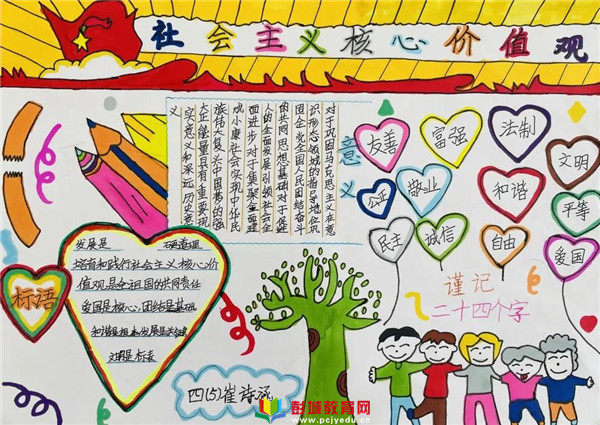 社会主义核心价值观
对于巩固马克思主义在意
识形态领域的指导地位巩
固全党全国人民团结奋斗
的共同思想基础对于促
人的全面发展引领社会全
面进步对于集聚全面建
成小康社会实现中华民
族伟大复兴中国梦的强
大正能量具有重要现
实意义和深远历史意
义
意义
友善
富强
法制
文明
公正
敬业
和谐
平等
民主
诚信
自由
爱国
谨记
二十四个字
标语
发展是 硬道理
培育和践行社会主义核心价
值观是全祖国的共同责任
爱国是核心团结是基础
和谐是根本发展是关键
文明是标志
四(5)崔诗涵
彭城教育网
www.pcjyedu.cn